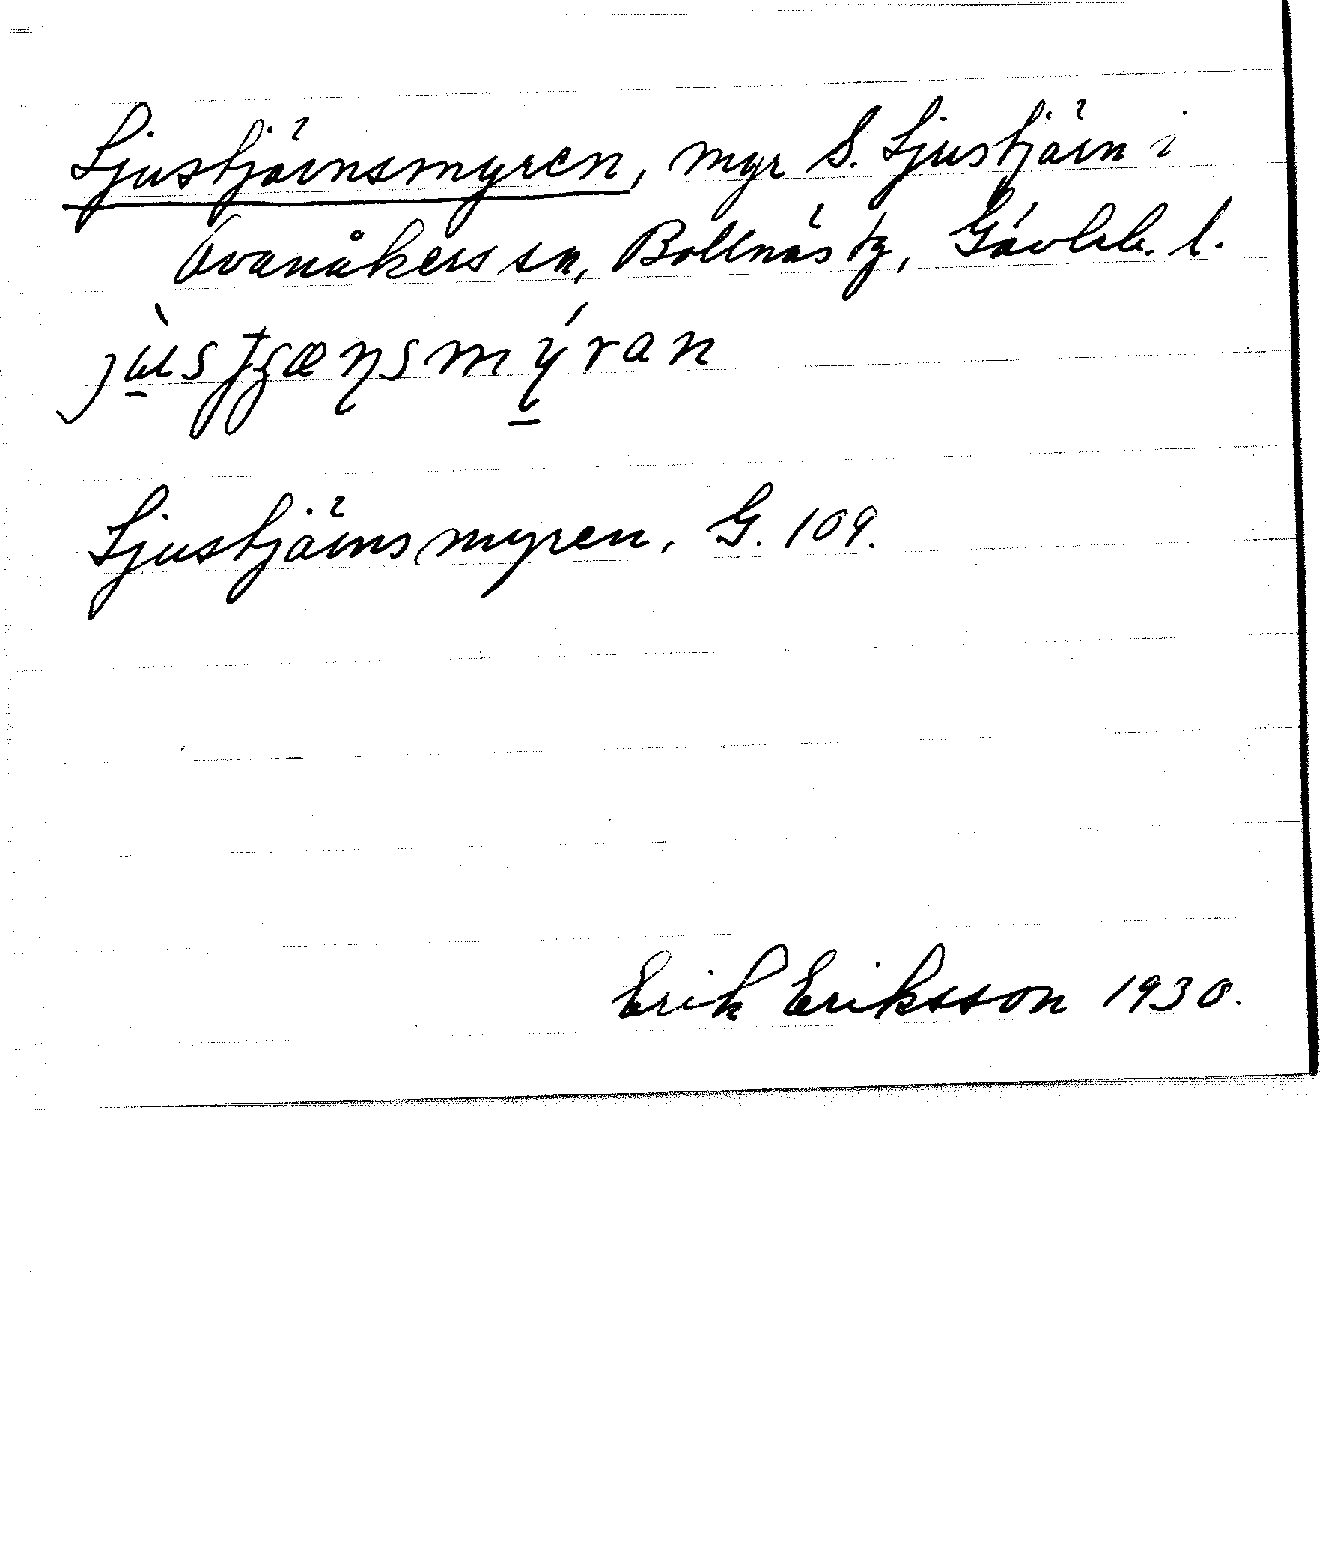 Ljustjärnsmyren, myr S. Ljustjärn i
Ovanåkers sn, Bollnäs tg, Gävleb. l.
Ljustjärnsmyren, G. 109.
Erik Eriksson 1930.